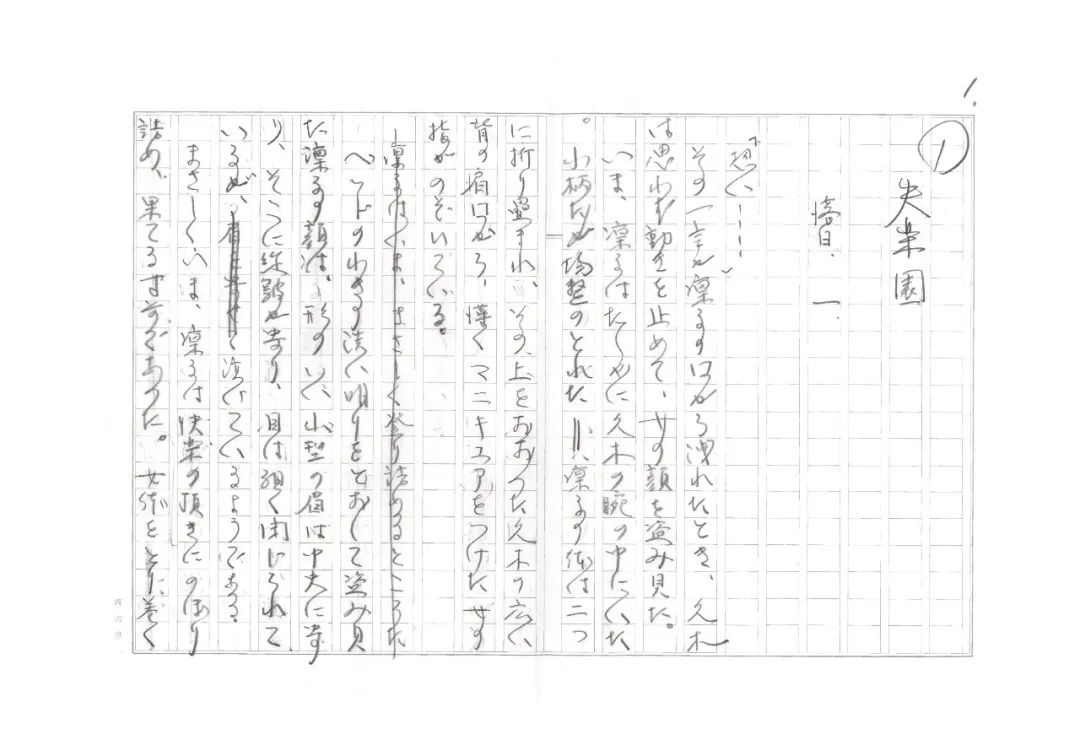 1.
①
失楽園
落日
一
「怖い……」
その一言が凛子の口から洩れたとき、久木
は思わず動きを止めて、女の顔を盗み見た。
いま、凛子はたしかに久木の腕の中にいた
。小柄だが均整のとれた凛子の体は二つ
に折り畳まれ、その上をおおった久木の広い
背の肩口から、薄くマニキュアをつけた女の
指がのぞいている。
凛子はいま、まさしく登り詰めるところだ
ベッドのわきの淡い明りをとおして盗み見
た凛子の顔は、形のいい山型の眉は中央に寄
り、そこに縦皺が寄り、目は細く閉じられて
いるが、泣いているようである。
まさしくいま、凛子は快楽の頂きにのぼり
詰め、果てる寸前であった。女体をとり巻く